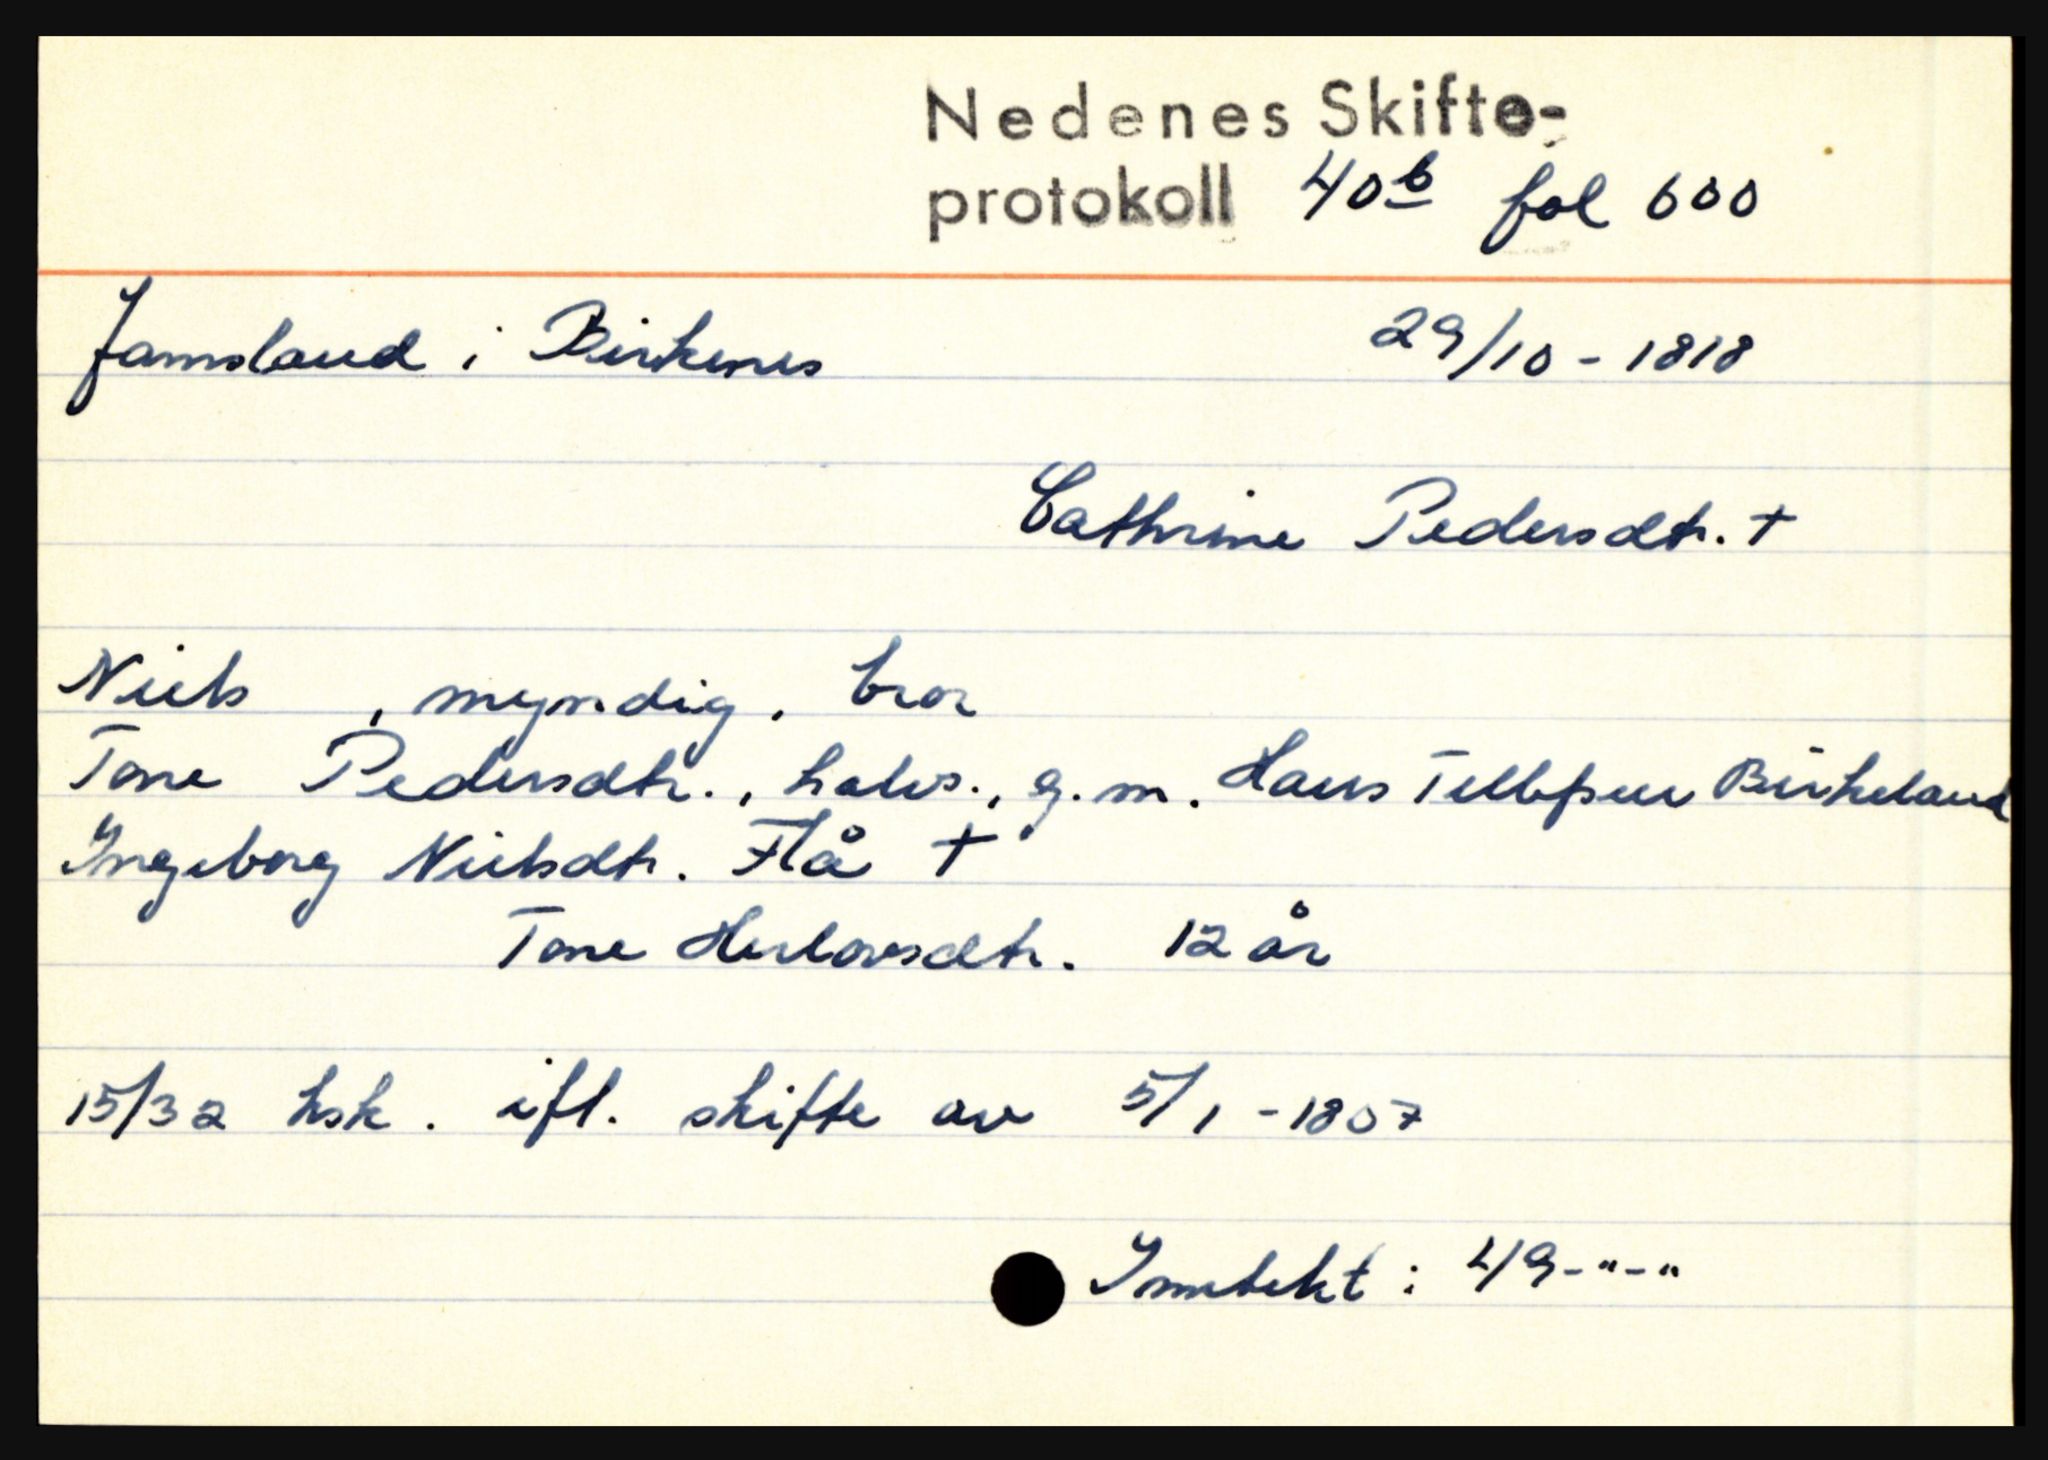 Nedenes Skifte-
protokoll 40b fol 600
Jamsland i Birkenes 29/10 - 1818
Cathrine Pedersdtr. †
Niels , myndig, bror
Tone Pedersdtr., halvs., g. m. Hans Tellefsen Birkeland
Ingeborg Nielsdtr. Flå †
Tone Herlovsdtr. 12 år
15/32 hsk. ifl. skifte av 5/1 - 1807
Inntekt : 49-"-"